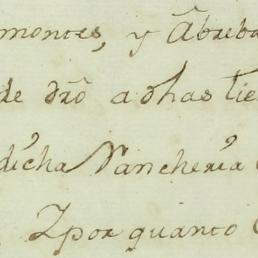 montes, y Abreba
de dr̃o a dhas tie
dicha Rancheria
Y por quanto